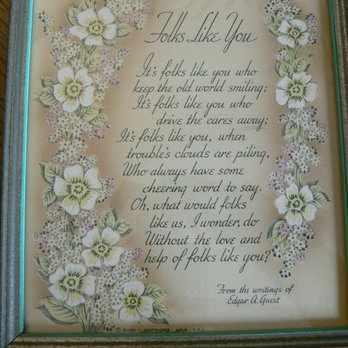 Folks Like You
It's folks like you who
keep the old world smiling;
It's folks like you who
drive the cares away;
It's folks like you, when
trouble's clouds are piling,
Who always have some
cheering word to say.
Oh, what would folks
like us, I wonder, do
Without the love and
help of folks like you?
From the writings of
Edgar A. Guest
©